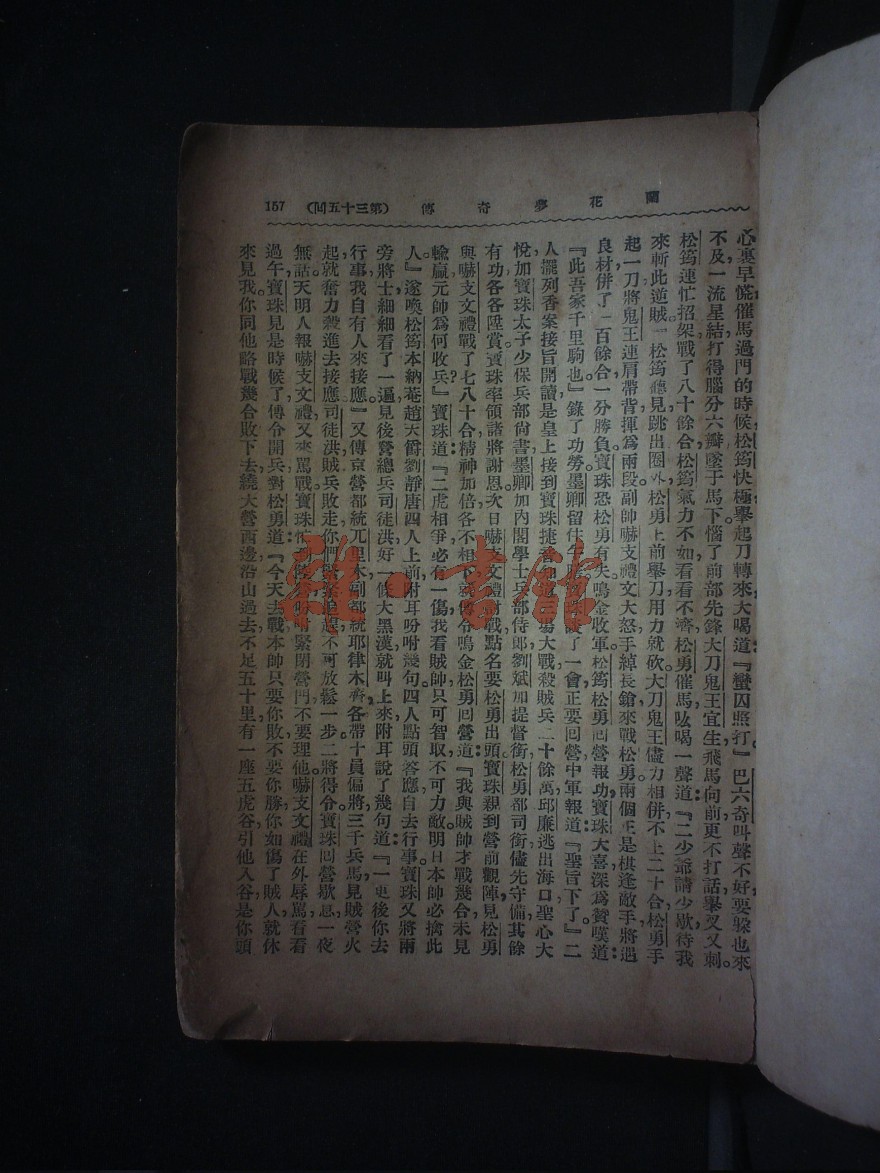 蘭花夢奇傳 (第三十五回) 157
心裏早慌，催馬過門的時候，松筠快極，舉起刀轉來大喝道：『蠻囚照打』巴六奇叫聲不好，要躲也來
不及，一流星結打得腦分六瓣，墜于馬下。惱了前部先鋒大刀鬼王宜生，飛馬向前，更不打話，舉叉又刺。
松筠連忙招架，戰了八十餘合，松筠氣力不如，看看不濟，松勇催馬吆喝一聲道：『二少爺請少歇，待我
來斬此逆賊』松筠聽見，跳出圈外，松勇上前舉刀用力就砍，大刀鬼王儘力相併，不上二十合，松勇手
起一刀，將鬼王連肩帶背揮為兩段。副帥嚇支禮文大怒，手綽長鎗來戰松勇，兩個正是棋逢敵手，將遇
良材，併了一百餘合，一分勝負。寶珠恐松勇有失，鳴金收軍。松筠松勇回營報功，寶珠大喜，深為贊嘆道：
『此吾家千里駒也』錄了功勞，墨卿留住 了一會，正要回營，中軍報道：『聖旨下了』二
人擺列香案接旨開讀，是皇上接到寶珠捷 大戰殺賊兵二十餘萬，邱廉逃出海口，聖心大
悅，加寶珠太子少保兵部尚書，墨卿加內閣學士兵部侍郎，劉斌加提督銜，松勇都司銜，儘先守備，其餘
有功各各陞賞。寶珠率領諸將謝恩。次日嚇支文禮討戰，點名要松勇出頭，寶珠親到營前觀陣，見松勇
與嚇支文禮戰了七八十合，精神加倍，各不相下，就傳令鳴金。松勇回營道：『我與賊帥才戰幾合，未見
輸贏，元帥為何收兵？』寶珠道：『二虎相爭，必有一傷，我看賊帥只可智取，不可力敵，明日本帥必擒此
人』遂喚松筠木納菴趙天爵劉靜唐四人上前，附耳吩咐幾句，四人點頭答應，自去行事。寶珠又將兩
旁將士細細看了一遍，見後營總兵司徒洪好一條大黑漢，就叫上來附耳說了幾句道：『一更後你去
行事，我自有人來接應』又傳京營都統兀里木副都統耶律木齊，各帶十員偏將，三千兵馬，見賊營火
起，就奮力殺進去接應司徒洪，賊兵敗走，你們緊緊追趕，不可放鬆一步。二將得令。寶珠回營歇息，一夜
無話。天明人報嚇支文禮又來罵戰，寶珠 吩咐緊閉營門，不要理他。嚇支文禮在外辱罵，看看
過午，寶珠見是時候了，傳令開兵，對松勇道：『今天去戰，本帥只要你敗，不要你勝，你如傷了賊人，就休
來見我，你同他略戰幾合敗下去，繞大營西邊沿山過去，不足五十里，有一座五虎谷，引他入谷，是你頭